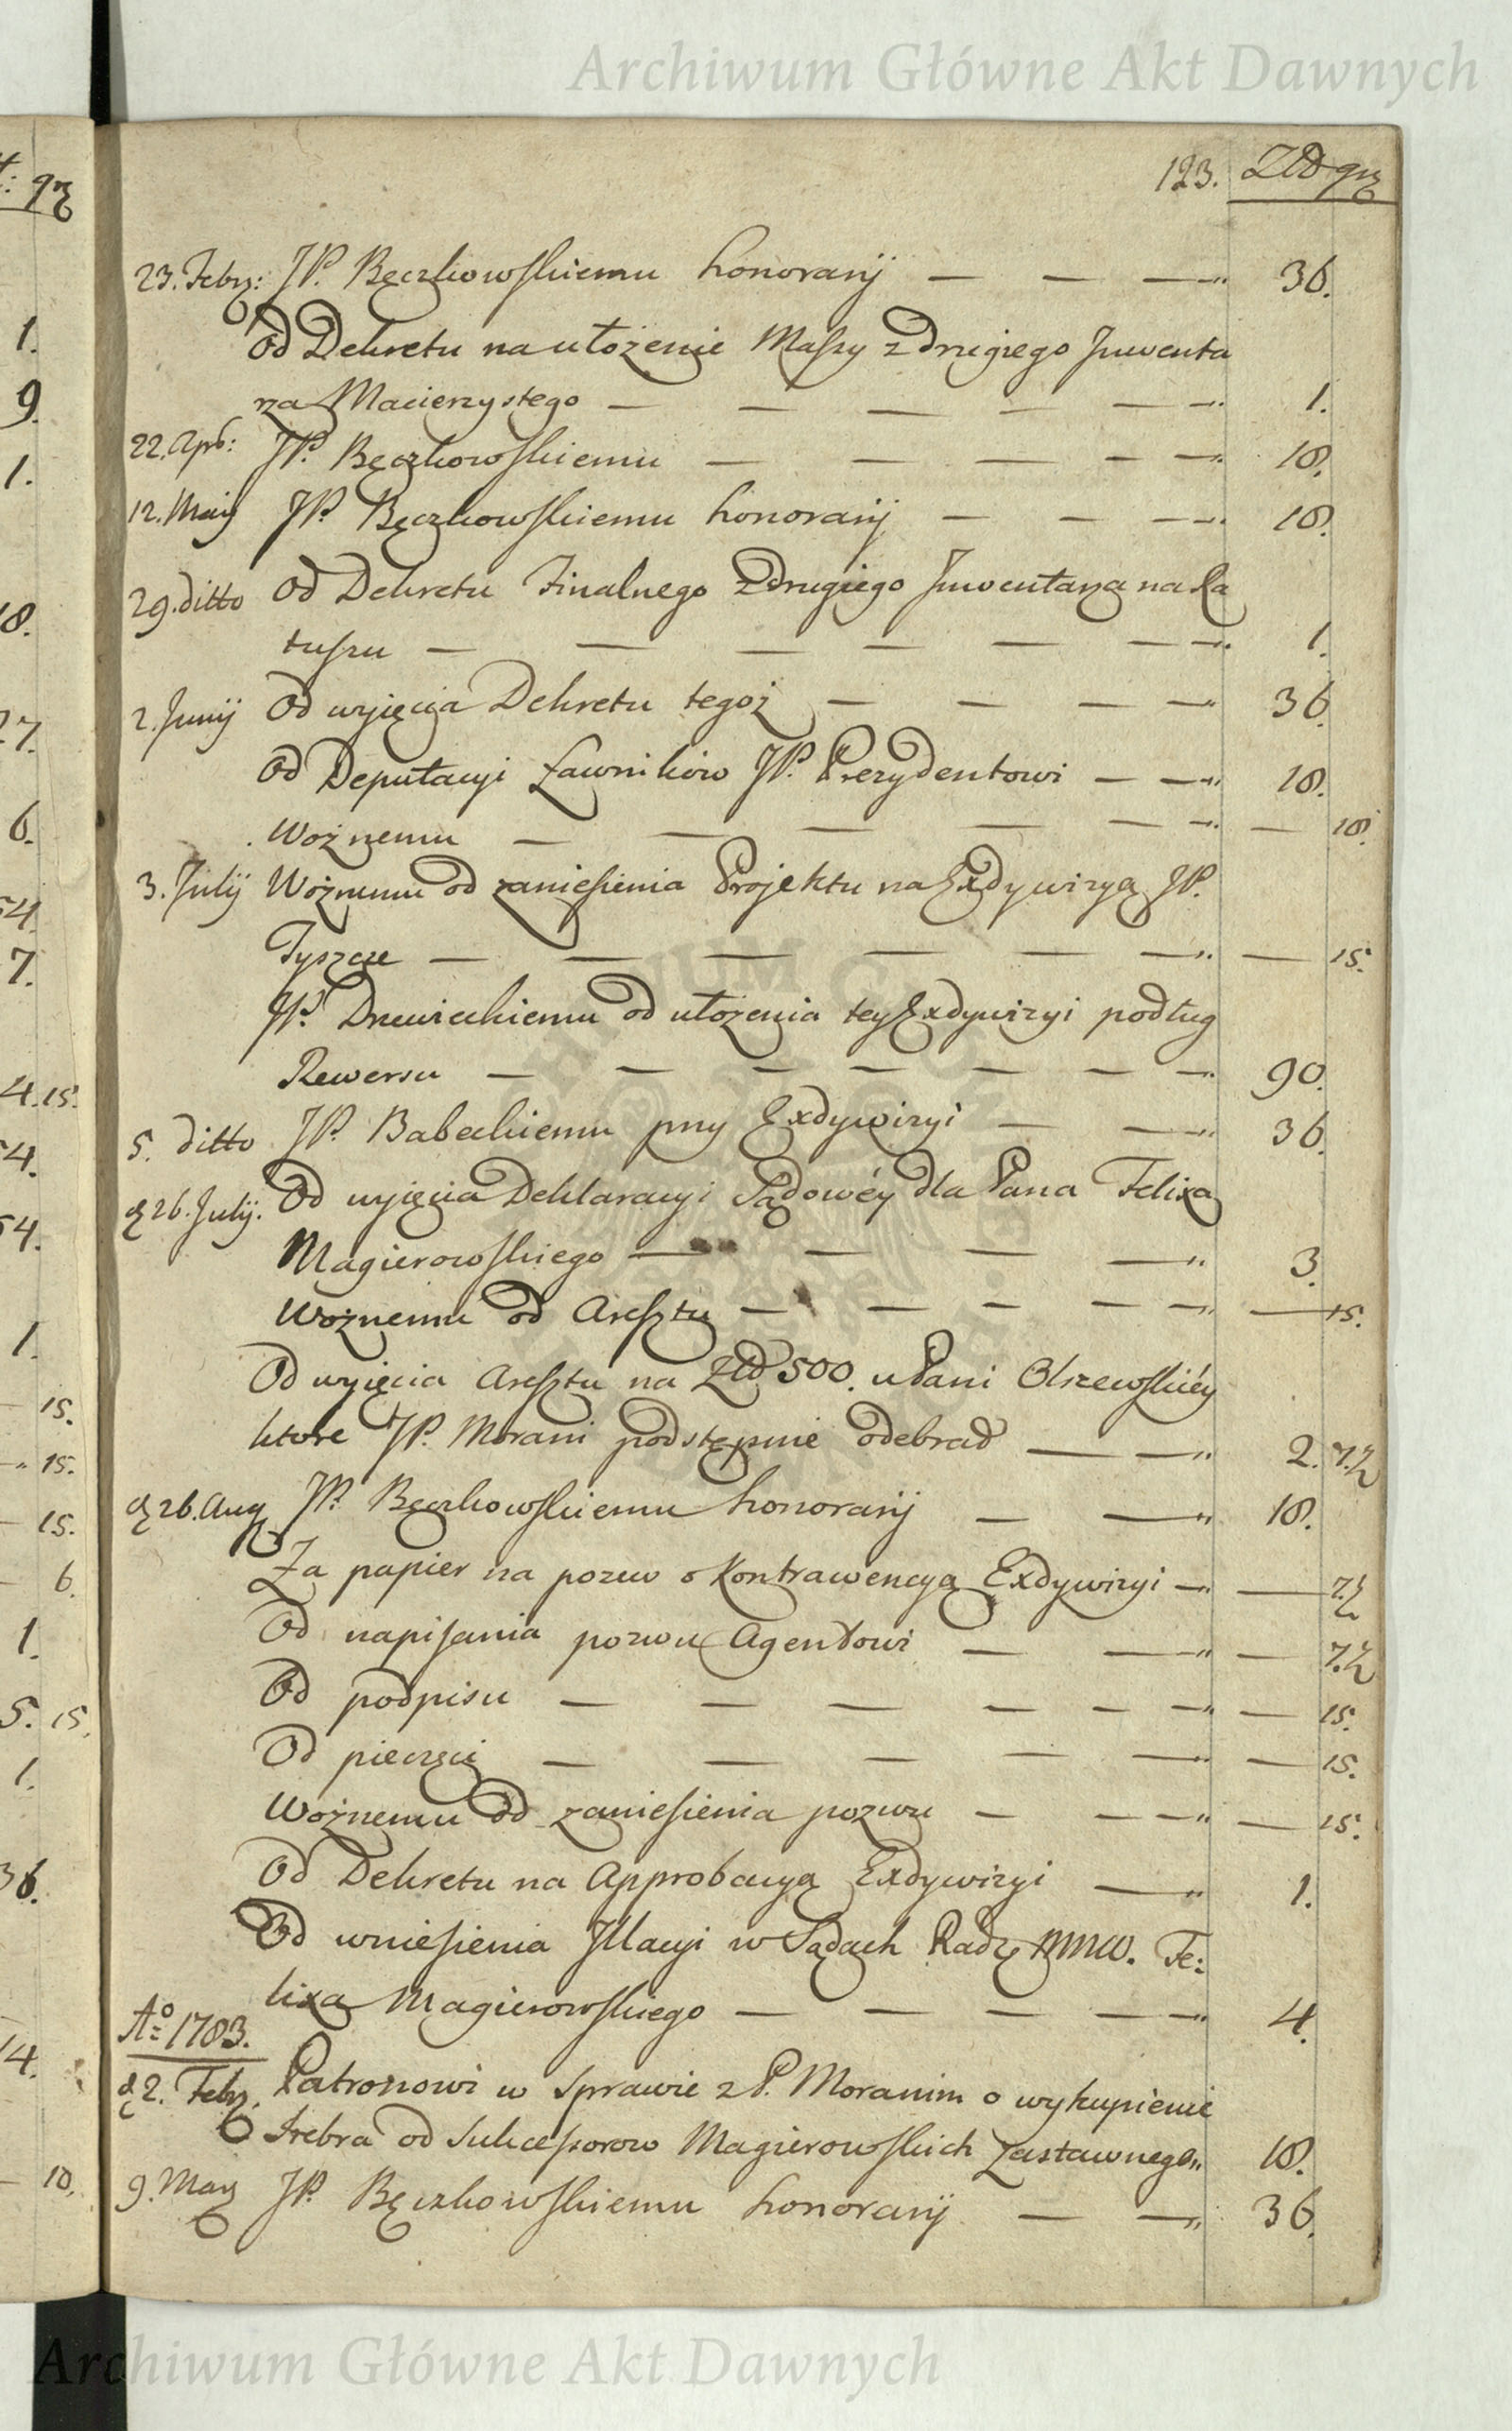 Archiwum Główne Akt Dawnych
123. Złd gr
23. Febr: JP. Bęczkowskiemu honorarij — — —„ 36.
Od Dekretu na ułożenie Massy z Drugiego Juwenta
rza Macierzystego — — — — — —„ 1.
22. Apr: JP. Bęczkowskiemu — — — — —„ 18.
12. Maij JP. Bęczkowskiemu honorarij — — —„ 18.
29. ditto Od Dekretu Finalnego z drugiego Juwentarza na Ra
tuszu — — — — — — —„ 1.
2. Junij Od wyjęcia Dekretu tegoż — — — —„ 36.
Od Deputacyi Ławnikow JP. Prezydentowi — —„ 18.
Woźnemu — — — — — —„ — 18.
3. Julij Woźnemu od zaniesienia Projektu na Exdywizyą JP.
Tyszce — — — — — —„ — 15.
JP. Drewieckiemu od ułożenia tey Exdywizyi podług
Rewersu — — — — — — —„ 90.
5. ditto JP. Babeckiemu przy Exdywizyi — —„ 36.
d 26. Julij. Od wyjęcia Deklaracyi Sądowéy dla Pana Felixa
Magierowskiego — — — —„ 3.
Woźnemu od Aresztu — — — — —„ — 15.
Od wyjęcia Aresztu na Złd 500. u Pani Olszewskiéy
ktore JP. Morani podstępnie odebrał — —„ 2. 7.½
d 26. Aug JP. Bęczkowskiemu honorarij — —„ 18.
Za papier na pozew o Kontrawencyą Exdywizyi —„ — 7.½
Od napisania pozwu Agentowi — —„ — 7.½
Od podpisu — — — — — —„ — 15.
Od pieczęci — — — — —„ — 15.
Woźnemu od zaniesienia pozwu — — —„ — 15.
Od Dekretu na Approbacyą Exdywizyi —„ 1.
Od wniesienia Illacyi w Sądach Radz MMW. Fe:
lixa Magierowskiego — — — — —„ 4.
Aº 1783.
d 2. Febr. Patronowi w Sprawie z P. Moranim o wykupienie
Srebra od Sukcessorow Magierowskich Zastawnego„ 18.
9. May JP. Bęczkowskiemu honorarij — —„ 36.
Archiwum Główne Akt Dawnych